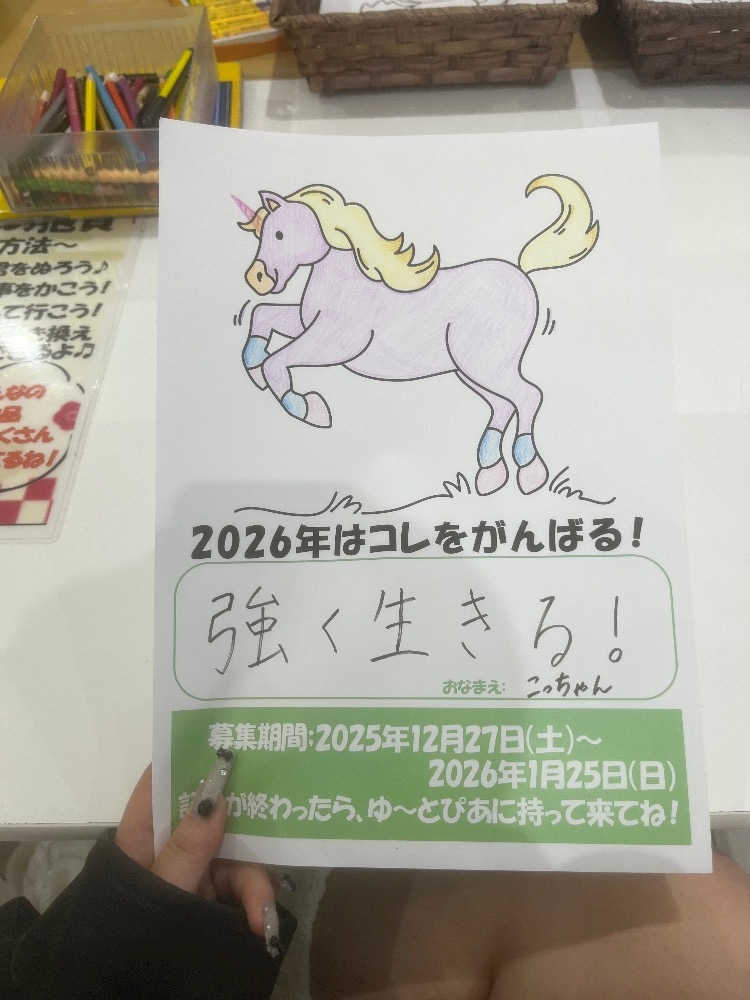 方法～
君をぬろう♪
事をかこう！
て行こう！
換え
るよ♫
んなの
品
くさん
てるね！
2026年はコレをがんばる！
強く生きる！
おなまえ: こっちゃん
募集期間;2025年12月27日(土)～
2026年1月25日(日)
が終わったら、ゆ～とぴあに持って来てね！